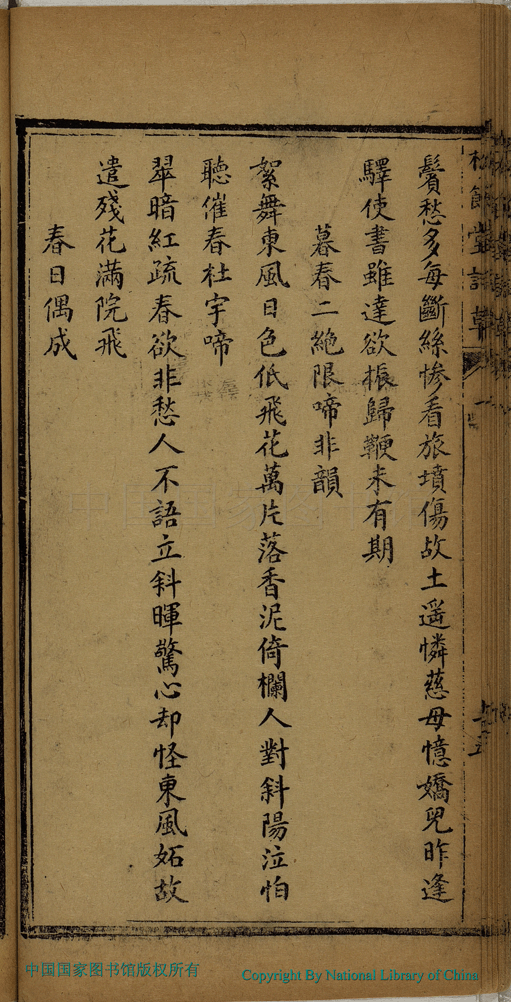 鬢愁多每斷絲慘看旅墳傷故土遥憐慈母憶嬌兒昨逢
驛使書雖達欲振歸鞭未有期
暮春二絶限啼非韻
絮舞東風日色低飛花萬片落香泥倚欄人對斜陽泣怕
聽催春杜宇啼
翠暗紅疏春欲非愁人不語立斜暉驚心却怪東風妬故
遣殘花滿院飛
春日偶成
中国国家图书馆版权所有
Copyright By National Library of China